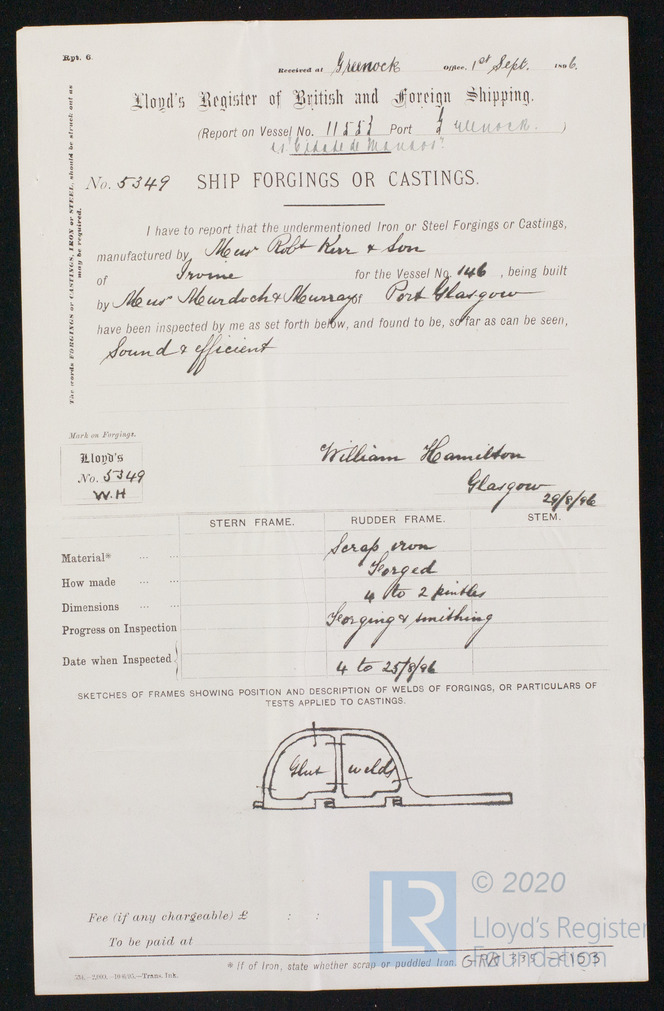 Rpt. 6.
Received at Greenock Office, 1st Sept. 1896.
Lloyd's Register of British and Foreign Shipping.
(Report on Vessel No. 11553 Port Greenock.)
"Cidade de Manaos"
No. 5349 SHIP FORGINGS OR CASTINGS.
The words FORGINGS or CASTINGS, IRON or STEEL, should be struck out as may be required.
I have to report that the undermentioned Iron or Steel Forgings or Castings,
manufactured by Messrs Robt Kerr & Son
of Irvine for the Vessel No. 146, being built
by Messrs Murdoch & Murray of Port Glasgow
have been inspected by me as set forth below, and found to be, so far as can be seen,
Sound & efficient
Mark on Forgings.
Lloyd's
No. 5349
W.H
William Hamilton
Glasgow
29/8/96
STERN FRAME. RUDDER FRAME. STEM.
Material* ... ... Scrap iron
How made ... ... Forged
Dimensions ... ... 4 to 2 pintles
Progress on Inspection Forging & smithing
Date when Inspected 4 to 25/8/96
SKETCHES OF FRAMES SHOWING POSITION AND DESCRIPTION OF WELDS OF FORGINGS, OR PARTICULARS OF
TESTS APPLIED TO CASTINGS.
Glut welds
Fee (if any chargeable) £ : :
To be paid at
* If of Iron, state whether scrap or puddled Iron.
2,000.—10/6/95.—Trans. Ink.
LR
© 2020
Lloyd's Register
Foundation